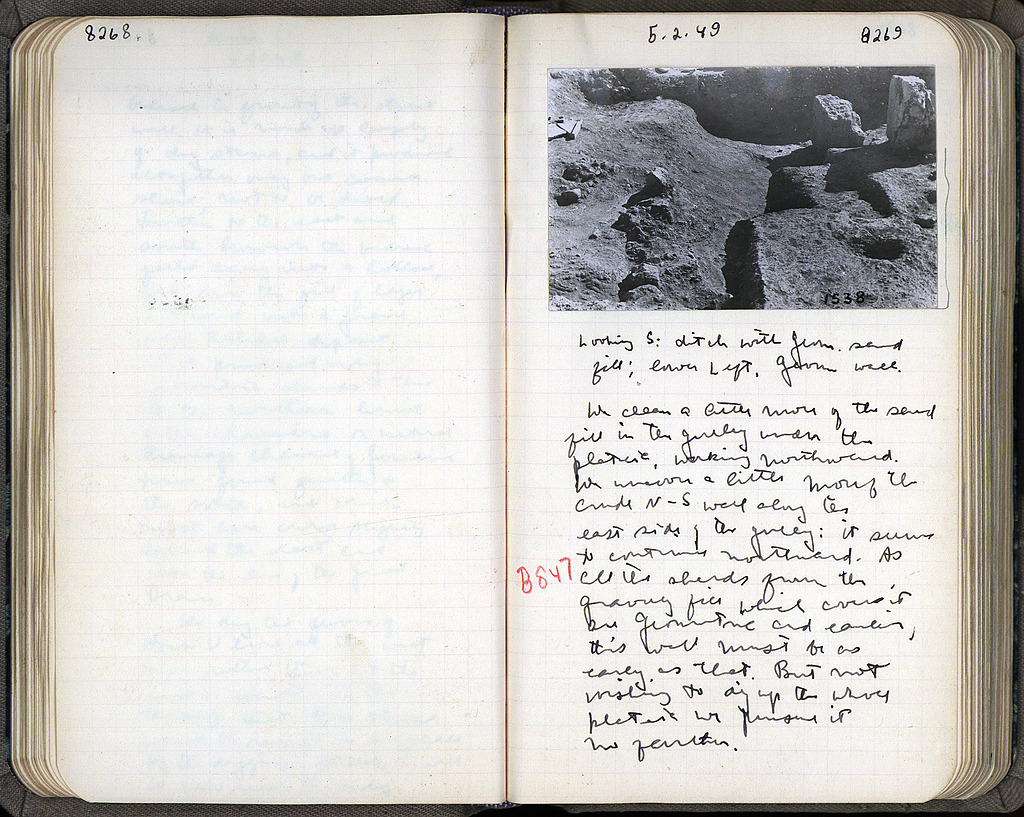 8268.
5.2.49
8269
1538
Looking S: ditch with geom. sand
fill; lower left, geom wall.
We clean a little more of the sand
fill in the gulley under the
plateia, working northward.
We uncover a little more of the
crude N-S wall along the
east side of the gulley: it seems
to continue northward. As
B847
all the sherds from the
gravelly fill which covers it
are geometric and earlier,
this wall must be as
early as that. But not
wishing to dig up the whole
plateia we pursue it
no farther.